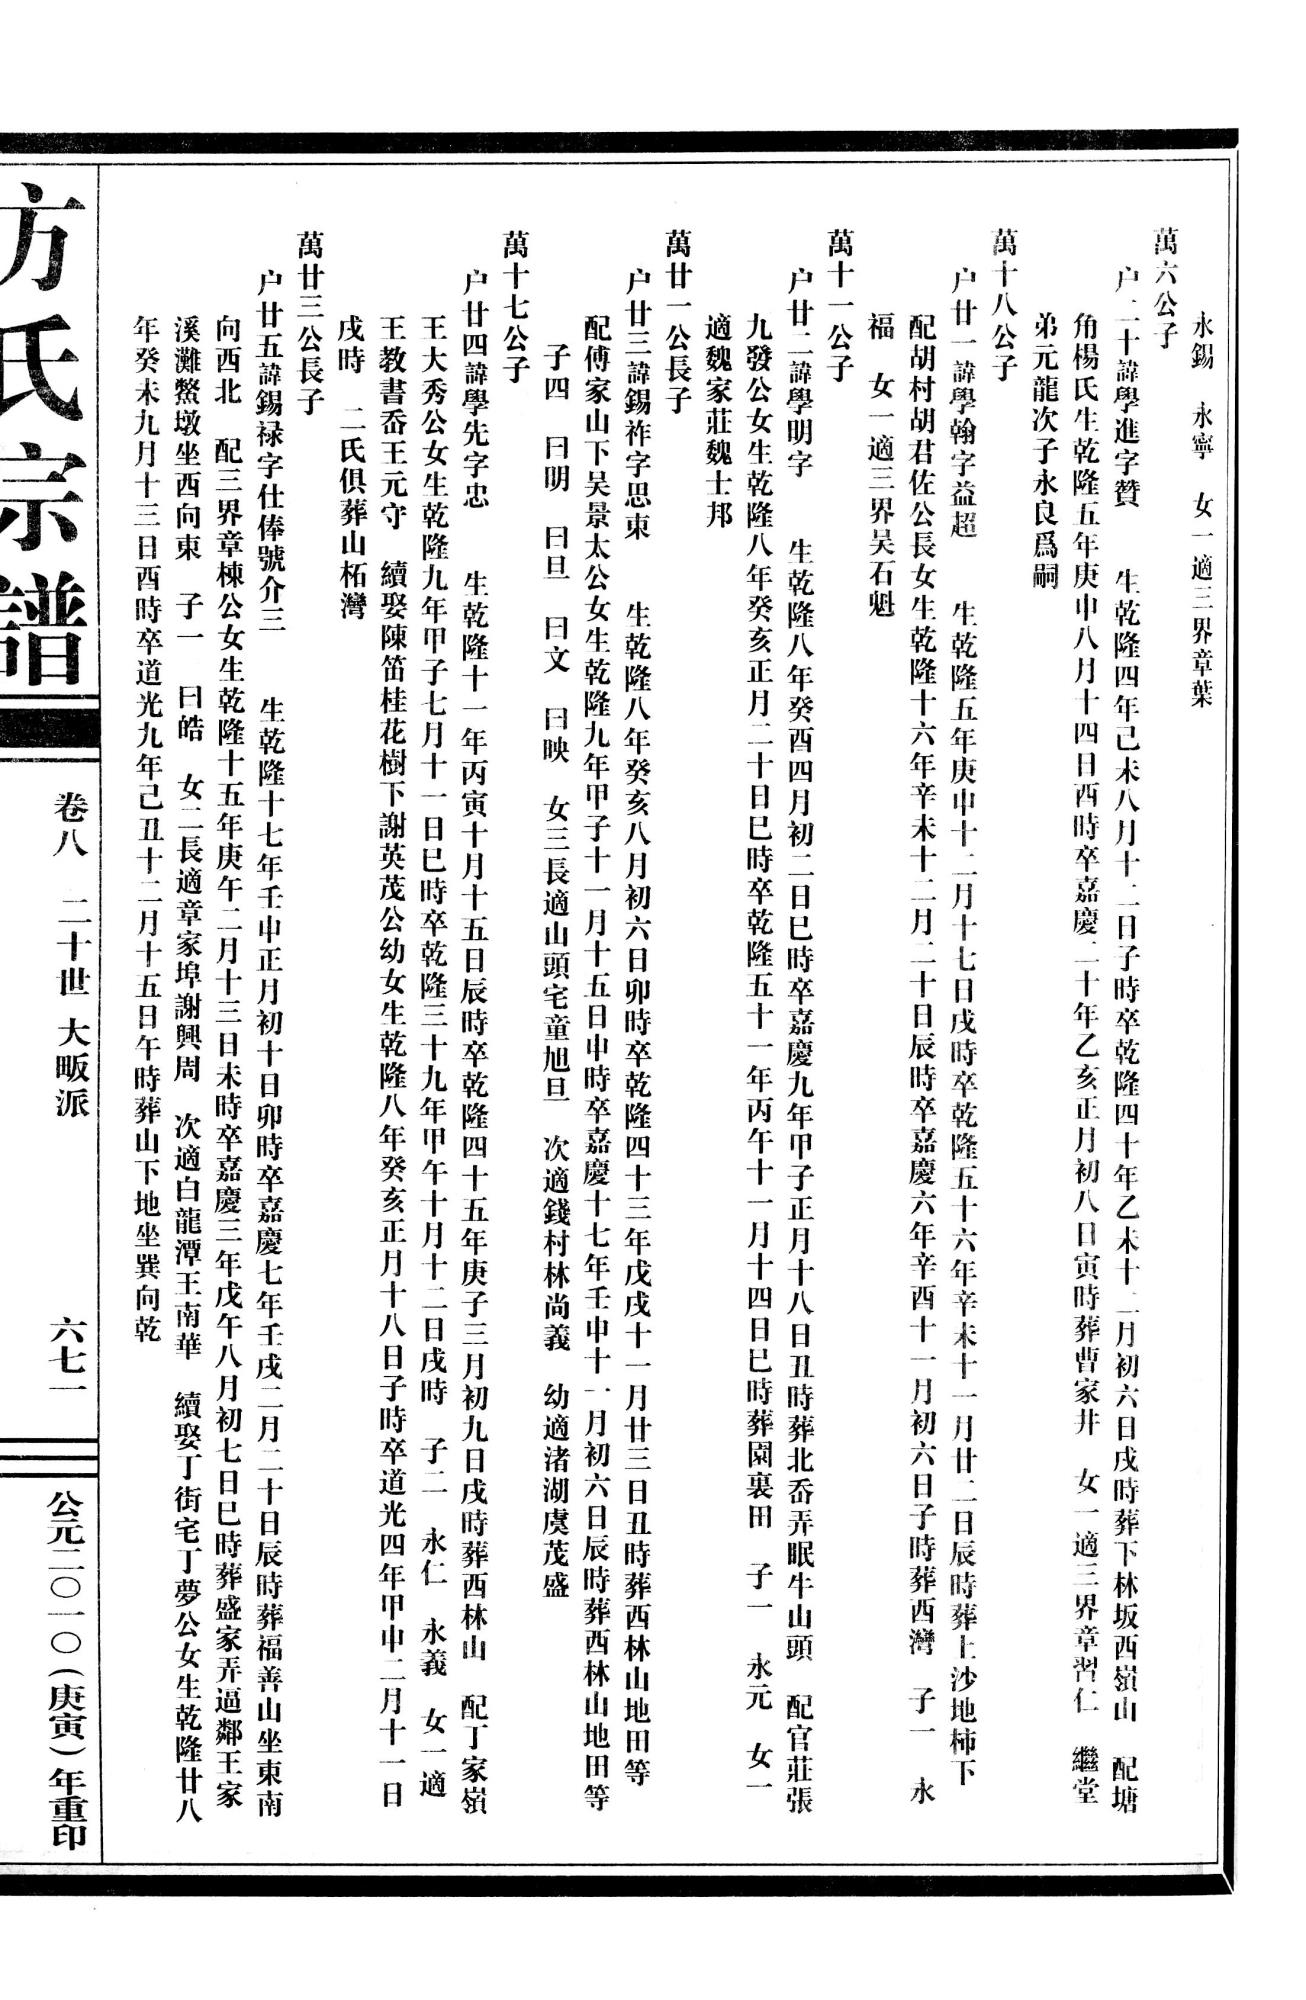 永錫　永寧　女一適三界章葉
萬六公子
户二十諱學進字贊　生乾隆四年己未八月十二日子時卒乾隆四十年乙未十二月初六日戌時葬下林坂西嶺山　配塘
角楊氏生乾隆五年庚申八月十四日酉時卒嘉慶二十年乙亥正月初八日寅時葬曹家井　女一適三界章習仁　繼堂
弟元龍次子永良爲嗣
萬十八公子
户廿一諱學翰字益超　生乾隆五年庚申十二月十七日戌時卒乾隆五十六年辛未十一月廿二日辰時葬上沙地柿下
配胡村胡君佐公長女生乾隆十六年辛未十二月二十日辰時卒嘉慶六年辛酉十一月初六日子時葬西灣　子一　永
福　女一適三界吴石魁
萬十一公子
户廿二諱學明字　生乾隆八年癸酉四月初二日巳時卒嘉慶九年甲子正月十八日丑時葬北岙弄眠牛山頭　配官莊張
九發公女生乾隆八年癸亥正月二十日巳時卒乾隆五十一年丙午十一月十四日巳時葬園裏田　子一　永元　女一
適魏家莊魏士邦
萬廿一公長子
户廿三諱錫祚字思東　生乾隆八年癸亥八月初六日卯時卒乾隆四十三年戊戌十一月廿三日丑時葬西林山地田等
配傅家山下吴景太公女生乾隆九年甲子十一月十五日申時卒嘉慶十七年壬申十一月初六日辰時葬西林山地田等
子四　曰明　曰旦　曰文　曰映　女三長適山頭宅童旭旦　次適錢村林尚義　幼適渚湖虞茂盛
萬十七公子
户廿四諱學先字忠　生乾隆十一年丙寅十月十五日辰時卒乾隆四十五年庚子三月初九日戌時葬西林山　配丁家嶺
王大秀公女生乾隆九年甲子七月十一日巳時卒乾隆三十九年甲午十月十二日戌時　子二　永仁　永義　女一適
王教書岙王元守　續娶陳笛桂花樹下謝英茂公幼女生乾隆八年癸亥正月十八日子時卒道光四年甲申二月十一日
戌時　二氏俱葬山柘灣
萬廿三公長子
户廿五諱錫禄字仕俸號介三　生乾隆十七年壬申正月初十日卯時卒嘉慶七年壬戌二月二十日辰時葬福善山坐東南
向西北　配三界章棟公女生乾隆十五年庚午二月十三日未時卒嘉慶三年戊午八月初七日巳時葬盛家弄逼鄰王家
溪灘鰲墩坐西向東　子一　曰皓　女二長適章家埠謝興周　次適白龍潭王南華　續娶丁街宅丁夢公女生乾隆廿八
年癸未九月十三日酉時卒道光九年己丑十二月十五日午時葬山下地坐巽向乾
方氏宗譜
卷八　二十世　大畈派　六七一
公元二〇一〇（庚寅）年重印